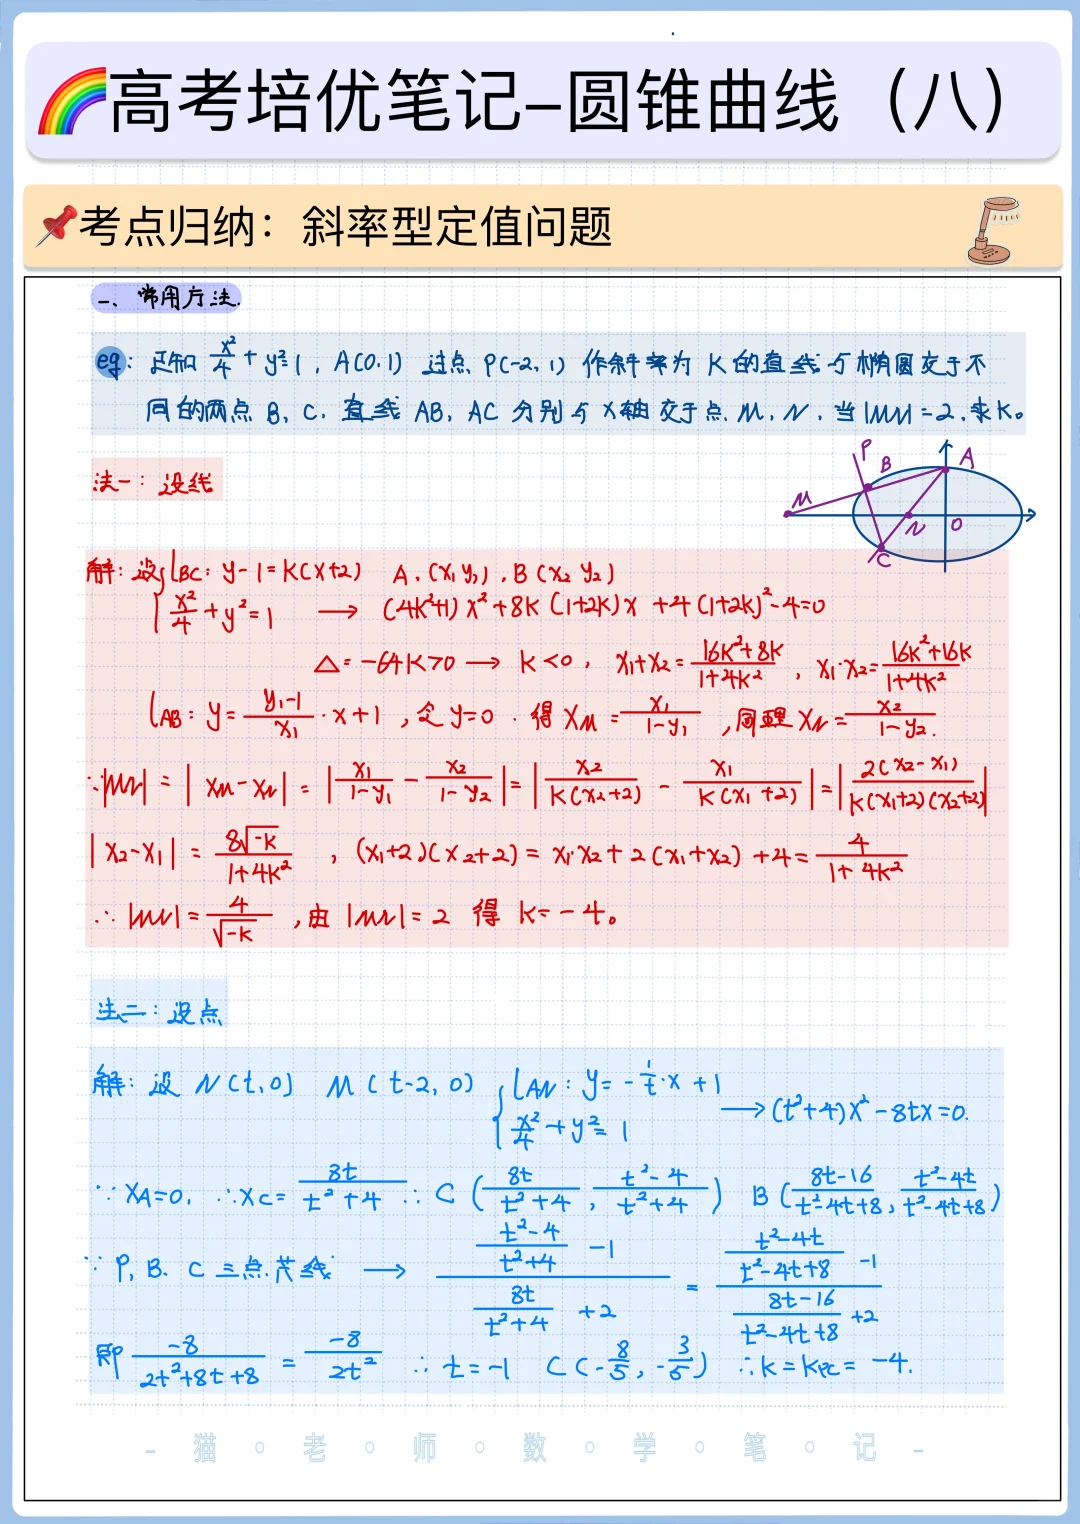 高考培优笔记–圆锥曲线（八）
考点归纳：斜率型定值问题
一、常用方法.
eg：已知 x²/4 + y²=1，A(0,1) 过点 P(-2,1) 作斜率为 K 的直线与椭圆交于不
同的两点 B，C，直线 AB，AC 分别与 X轴交于点 M，N，当|MN|=2，求K。
法一：设线
P B A
M N O
C
解：设 lBC：y-1=K(x+2) A.(x₁ y₁)，B(x₂ y₂)
x²/4+y²=1 → (4K²+1)x²+8K(1+2K)x+4(1+2K)²-4=0
△=-64K>0 → K<0，x₁+x₂=-(16K²+8K)/(1+4K²)，x₁·x₂=(16K²+16K)/(1+4K²)
lAB：y=(y₁-1)/x₁·x+1，令 y=0．得 XM=x₁/(1-y₁)，同理 XN=x₂/(1-y₂).
∵|MN|=|XM-XN|=|x₁/(1-y₁)-x₂/(1-y₂)|=|x₂/(K(x₂+2))-x₁/(K(x₁+2))|=|2(x₂-x₁)/(K(x₁+2)(x₂+2))|
|x₂-x₁|=8√-K/(1+4K²)，(x₁+2)(x₂+2)=x₁·x₂+2(x₁+x₂)+4=4/(1+4K²)
∴|MN|=4/√-K，由|MN|=2 得 K=-4。
法二：设点
解：设 N(t,0) M(t-2,0) lAN：y=-1/t·x+1
x²/4+y²=1 → (t²+4)x²-8tx=0.
∵XA=0，∴XC=8t/(t²+4) ∴C(8t/(t²+4)，(t²-4)/(t²+4)) B((8t-16)/(t²-4t+8)，(t²-4t)/(t²-4t+8))
∵P，B、C三点共线 → ((t²-4)/(t²+4)-1)/(8t/(t²+4)+2)=((t²-4t)/(t²-4t+8)-1)/((8t-16)/(t²-4t+8)+2)
即 -8/(2t²+8t+8)=-8/2t² ∴t=-1 C(-8/5，-3/5) ∴K=KPC=-4.
- 猫·老·师·数·学·笔·记 -